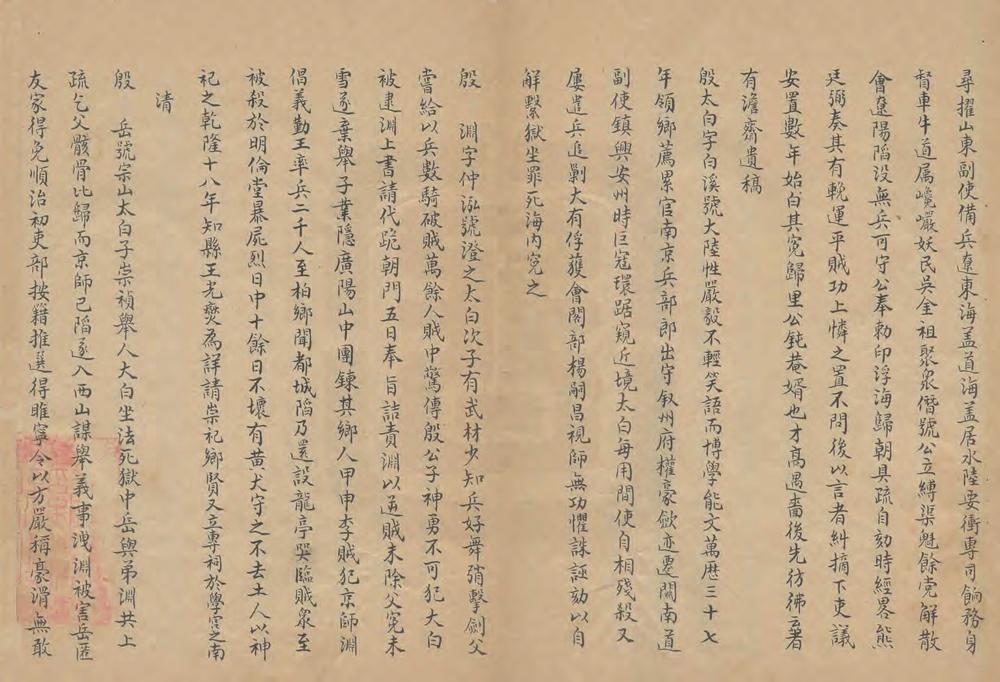 尋擢山東副使備兵遼東海盖道海盖居水陸要衝專司餉務身
督車牛道属巉巖妖民吳全祖聚眾僭號公立縛渠魁餘党解散
會遼陽陷没無兵可守公奉勅印浮海歸朝具疏自刻時經畧熊
廷弼奏其有輓運平賊功上憐之置不問後以言者糾摘下吏議
安置數年始白其冤歸里公鈍菴婿也才髙遇嗇後先彷彿云著
有澹齋遺稿
殷太白字白溪號大陸性嚴毅不輕笑語而博學能文萬厯三十七
年領鄉薦累官南京兵部郎出守叙州府權豪歛迹遷關南道
副使鎮興安州時巨寇環踞窺近境太白每用間使自相殘殺又
屢遣兵追剿大有俘獲會閣部楊嗣昌視師無功懼誅誣劾以自
解繫獄坐罪死海内冤之
殷 淵字仲泓號澄之太白次子有武材少知兵好舞矟擊劍父
嘗給以兵數騎破賊萬餘人賊中驚傳殷公子神勇不可犯大白
被逮淵上書請代跪朝門五日奉旨詰責淵以逋賊未除父冤未
雪遂棄舉子業隱廣陽山中團鍊其鄉人甲申李賊犯京師淵
倡義勤王率兵二千人至柏鄉聞都城陷乃還設龍亭哭臨賊衆至
被殺於明倫堂暴屍烈日中十餘日不壞有黄犬守之不去土人以神
祀之乾隆十八年知縣王光燮為詳請崇祀鄉賢又立專祠於學宮之南
清
殷 岳號宗山太白子崇禎舉人大白坐法死獄中岳與弟淵共上
疏乞父骸骨比歸而京師已陷遂入西山謀舉義事洩淵被害岳匿
友家得免順治初吏部按籍推選得睢寧令以方嚴稱豪滑無敢